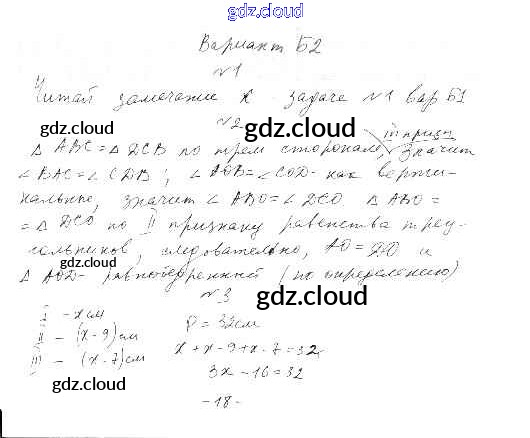 gdz.cloud
Вариант Б2
№1
Читай замечание к задаче №1 вар Б1
№2 gdz.cloud
gdz.cloud III призн
△ ABC = △ DCB по трем сторонам, значит
∠BAC = ∠CDB; ∠AOB = ∠COD - как верти-
кальные, значит ∠ABO = ∠DCO △ ABO =
= △ DCO по II признаку равенства треу-
гольников, следовательно, AO = DO и
△ AOD - равнобедренный (по определению)
gdz.cloud
№3 gdz.cloud
I - x см
II - (x-9) см
III - (x-7) см
P = 32 см
x + x - 9 + x - 7 = 32
3x - 16 = 32
gdz.cloud
gdz.cloud
- 18 -
gdz.cloud